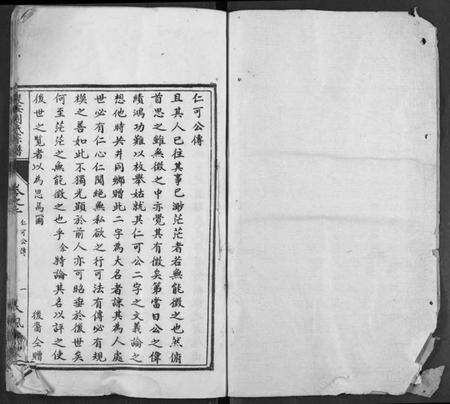 仁可公傳
且其人已往其事已渺茫茫者若無能徵之也然俯
首思之雖無徵之中亦覺其有徵矣第當日公之偉
績鴻功難以枚舉姑就其仁可公二字之文義論之
想他時共井同鄉贈此二字為大名者諒其為人處
世必有仁心仁聞絕無私欲之行可法有傳必有規
模之善如此不獨光顯於前人亦可昭垂於後世矣
何至茫茫之無能徵之也乎余特論其名以評之使
後世之覽者以為思焉爾
後裔仝贈
卷之
仁可公傳
一